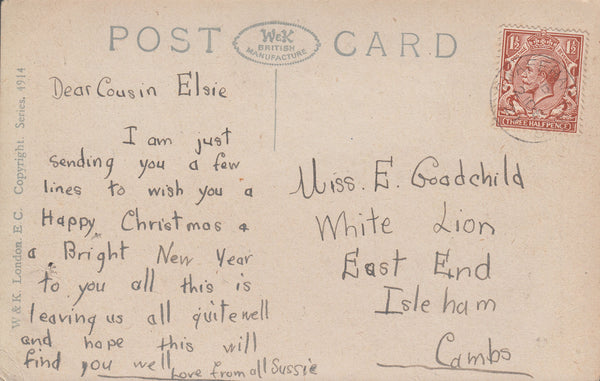 POST CARD
W&K
BRITISH
MANUFACTURE
1½ 1½
THREE HALFPENCE
W & K. London, E.C. Copyright. Series, 4914
Dear Cousin Elsie
I am just
sending you a few
lines to wish you a
Happy Christmas &
a Bright New Year
to you all this is
leaving us all quite well
and hope this will
find you well
Love from all Sussie
Miss. E. Goodchild
White Lion
East End
Isleham
Cambs